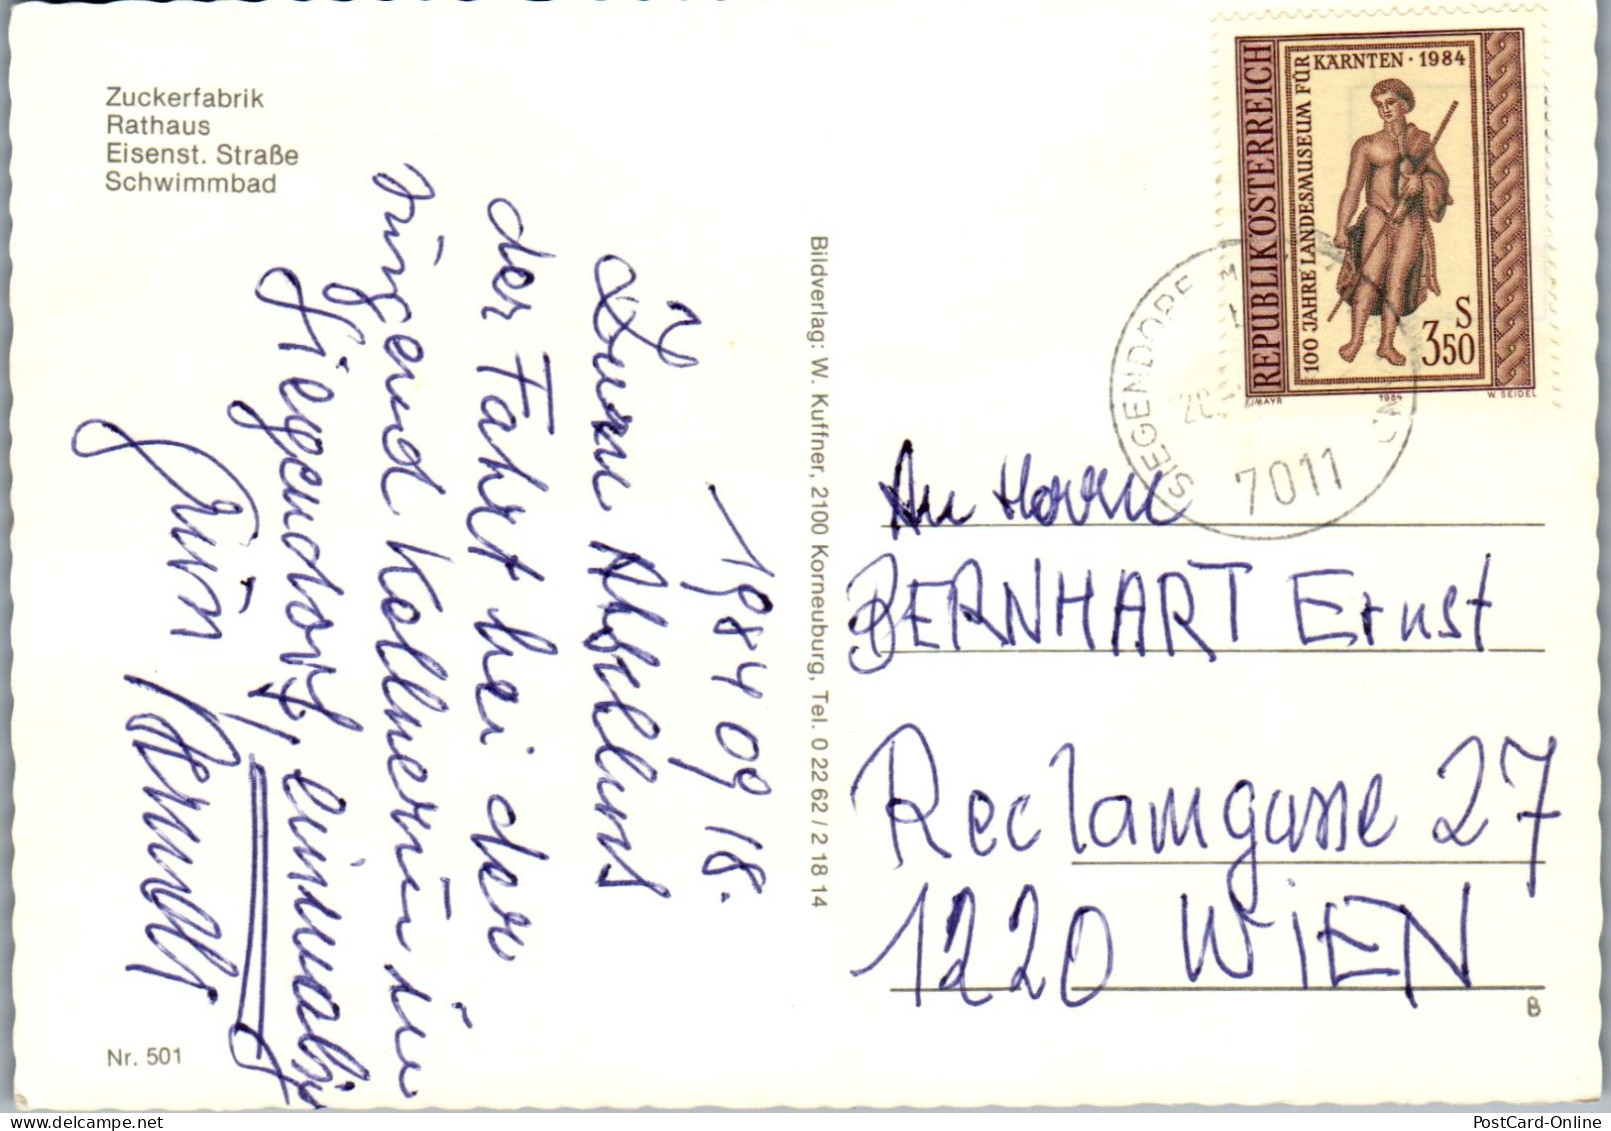 Zuckerfabrik
Rathaus
Eisenst. Straße
Schwimmbad
1984 09 18.
Zum Abschluss
der Fahrt bei der
Kellnerin in
Siegendorf, einmalig
Nr. 501
Bildverlag: W. Kuffner, 2100 Korneuburg, Tel. 0 22 62 / 2 18 14
REPUBLIK ÖSTERREICH
100 JAHRE LANDESMUSEUM FÜR
KÄRNTEN · 1984
S
350
1984
W. SEIDEL
SIEGENDORF
7011
An Herrn
BERNHART Ernst
Reclamgasse 27
1220 WIEN
B
PostCard-Online